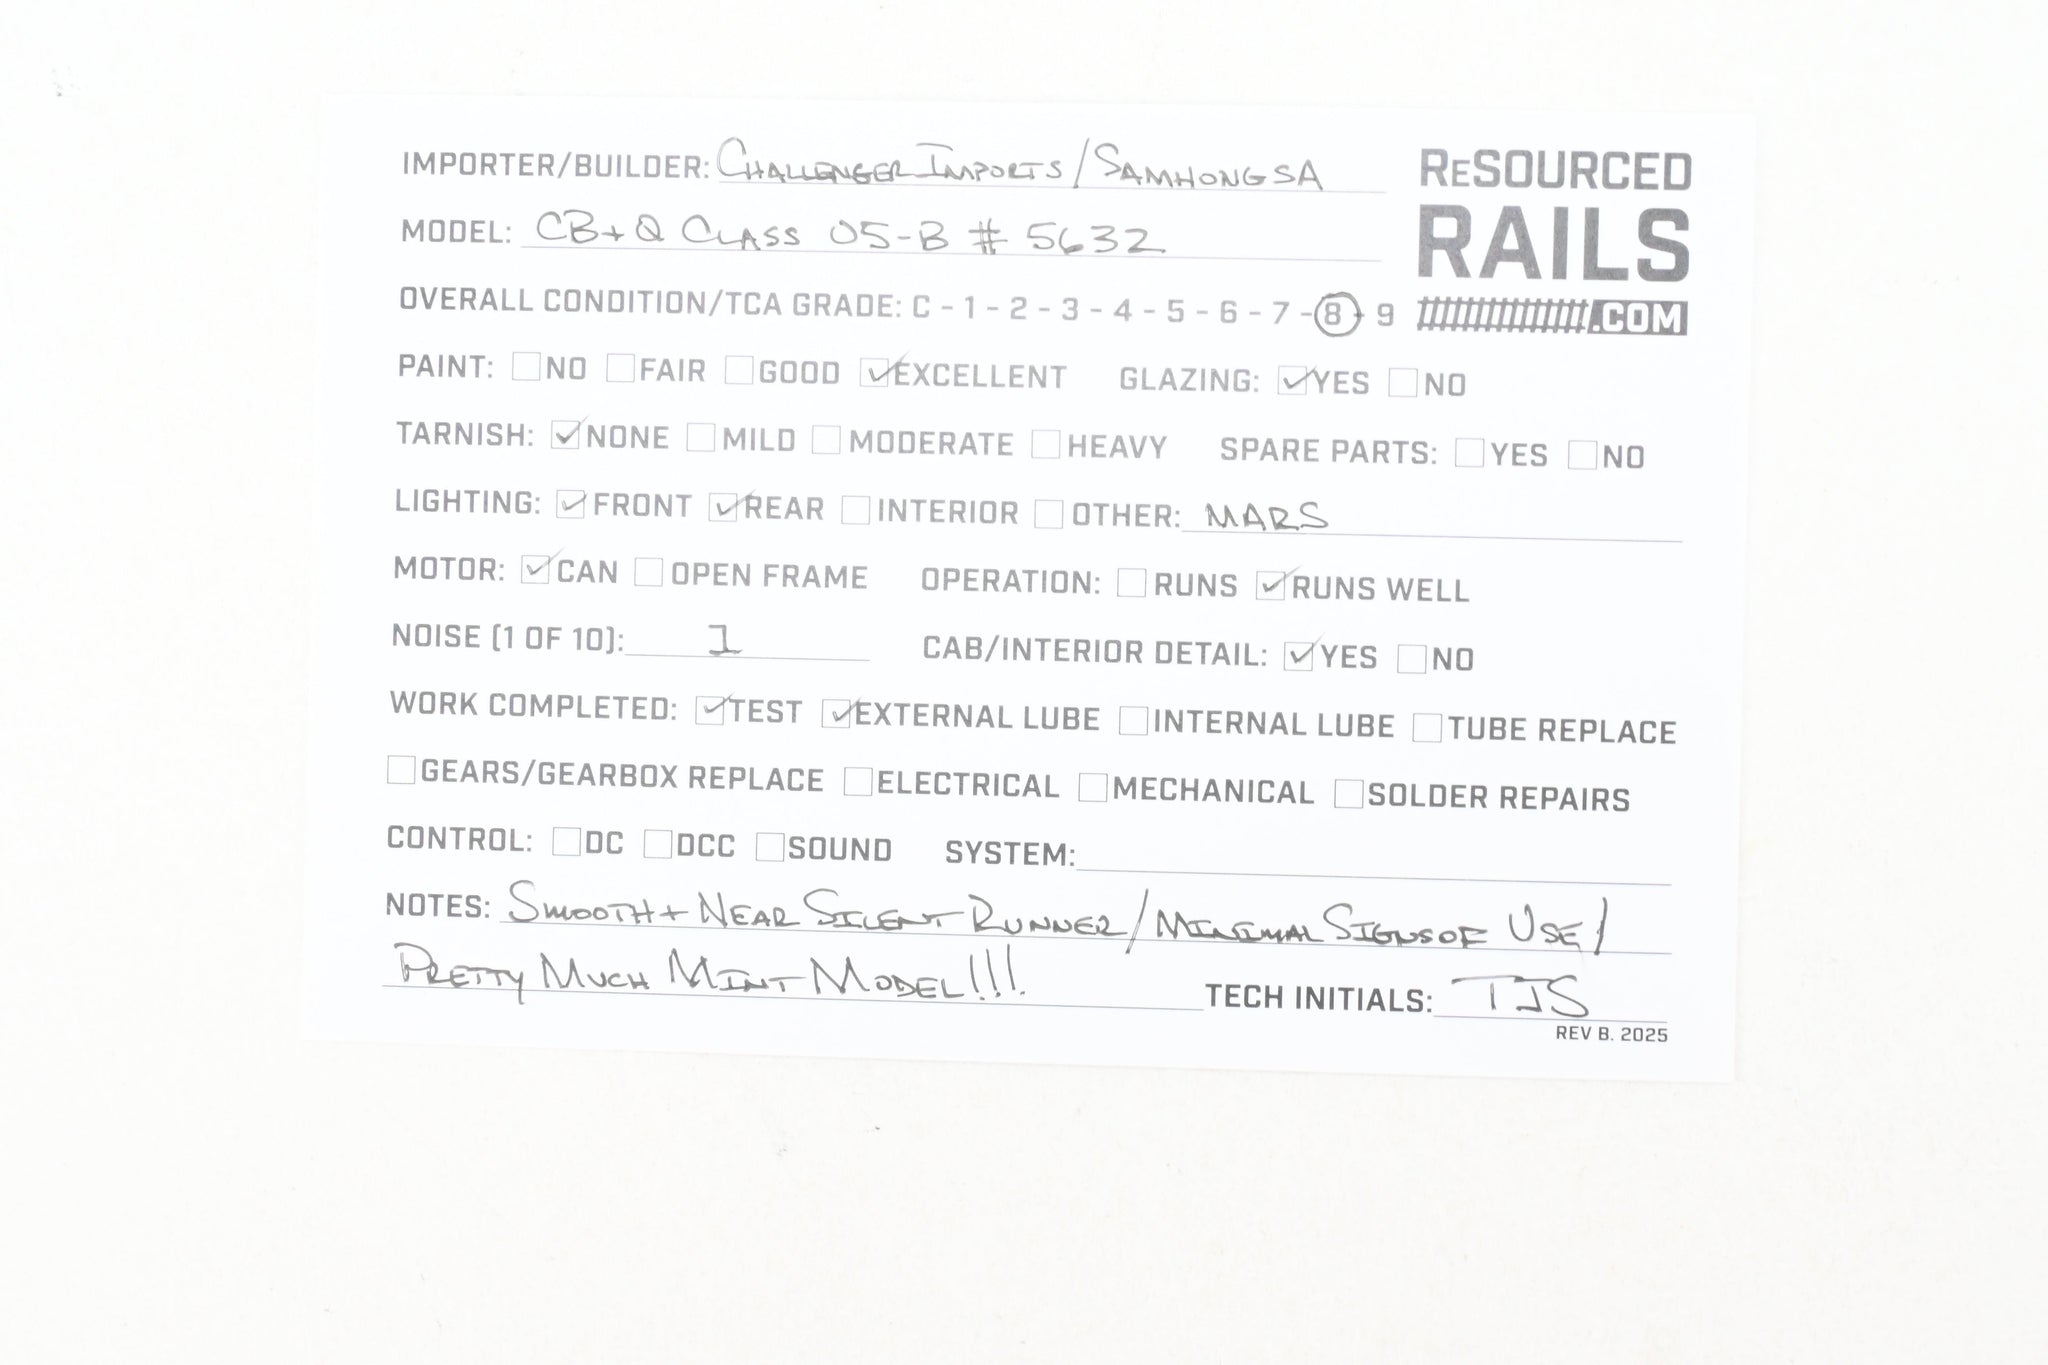 IMPORTER/BUILDER: CHALLENGER IMPORTS/SAMHONGSA
RESOURCED
RAILS
.COM
MODEL: CB+Q CLASS O5-B # 5632
OVERALL CONDITION/TCA GRADE: C - 1 - 2 - 3 - 4 - 5 - 6 - 7 - 8 - 9
PAINT: ☐NO ☐FAIR ☐GOOD ☑EXCELLENT GLAZING: ☑YES ☐NO
TARNISH: ☑NONE ☐MILD ☐MODERATE ☐HEAVY SPARE PARTS: ☐YES ☐NO
LIGHTING: ☑FRONT ☑REAR ☐INTERIOR ☐OTHER: MARS
MOTOR: ☑CAN ☐OPEN FRAME OPERATION: ☐RUNS ☑RUNS WELL
NOISE (1 OF 10): 1 CAB/INTERIOR DETAIL: ☑YES ☐NO
WORK COMPLETED: ☑TEST ☑EXTERNAL LUBE ☐INTERNAL LUBE ☐TUBE REPLACE
☐GEARS/GEARBOX REPLACE ☐ELECTRICAL ☐MECHANICAL ☐SOLDER REPAIRS
CONTROL: ☐DC ☐DCC ☐SOUND SYSTEM:
NOTES: SMOOTH + NEAR SILENT RUNNER/MINIMAL SIGNS OF USE/
PRETTY MUCH MINT MODEL!!! TECH INITIALS: TJS
REV B. 2025